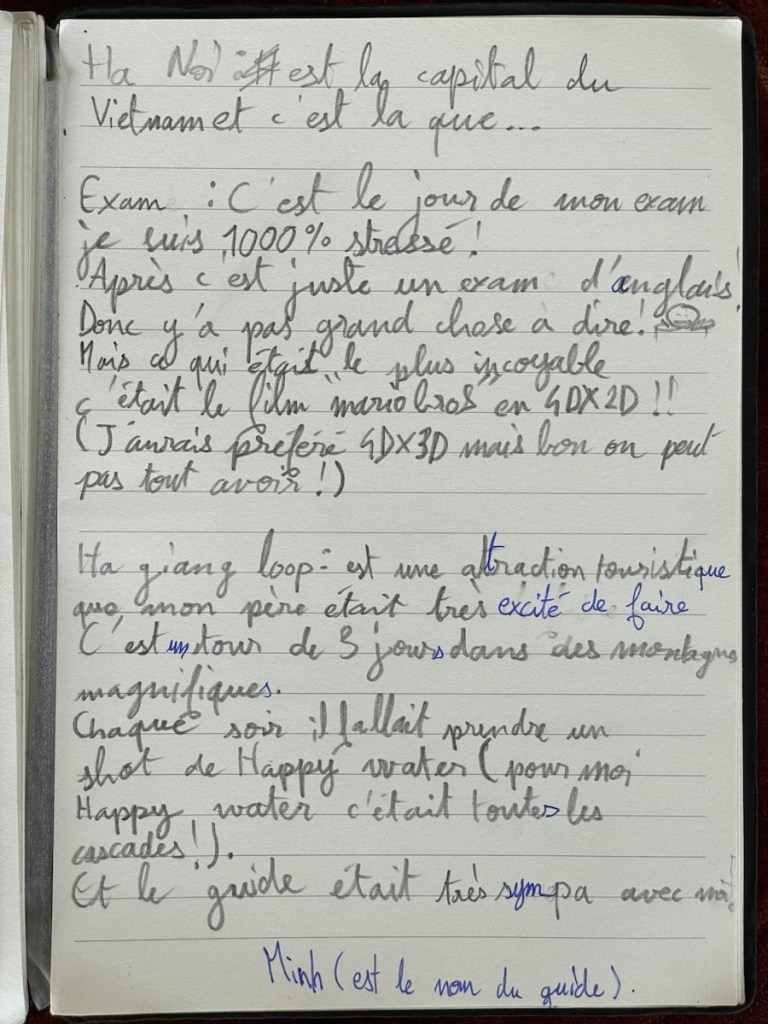 Ha Noi est la capital du
Vietnam et c'est la que...
Exam : C'est le jour de mon exam
je suis 1000% stressé !
Après c'est juste un exam d'anglais !
Donc y'a pas grand chose à dire !
Mais ce qui était le plus incoyable
c'était le film "mario bros" en 4DX2D !!
(J'aurais préféré 4DX3D mais bon on peut
pas tout avoir !)
Ha giang loop : est une attraction touristique
que mon père était très excité de faire
C'est un tour de 3 jours dans des montagns
magnifiques.
Chaque soir il fallait prendre un
shot de Happy water (pour moi
Happy water c'était toutes les
cascades !).
Et le guide était très sympa avec moi.
Minh (est le nom du guide).